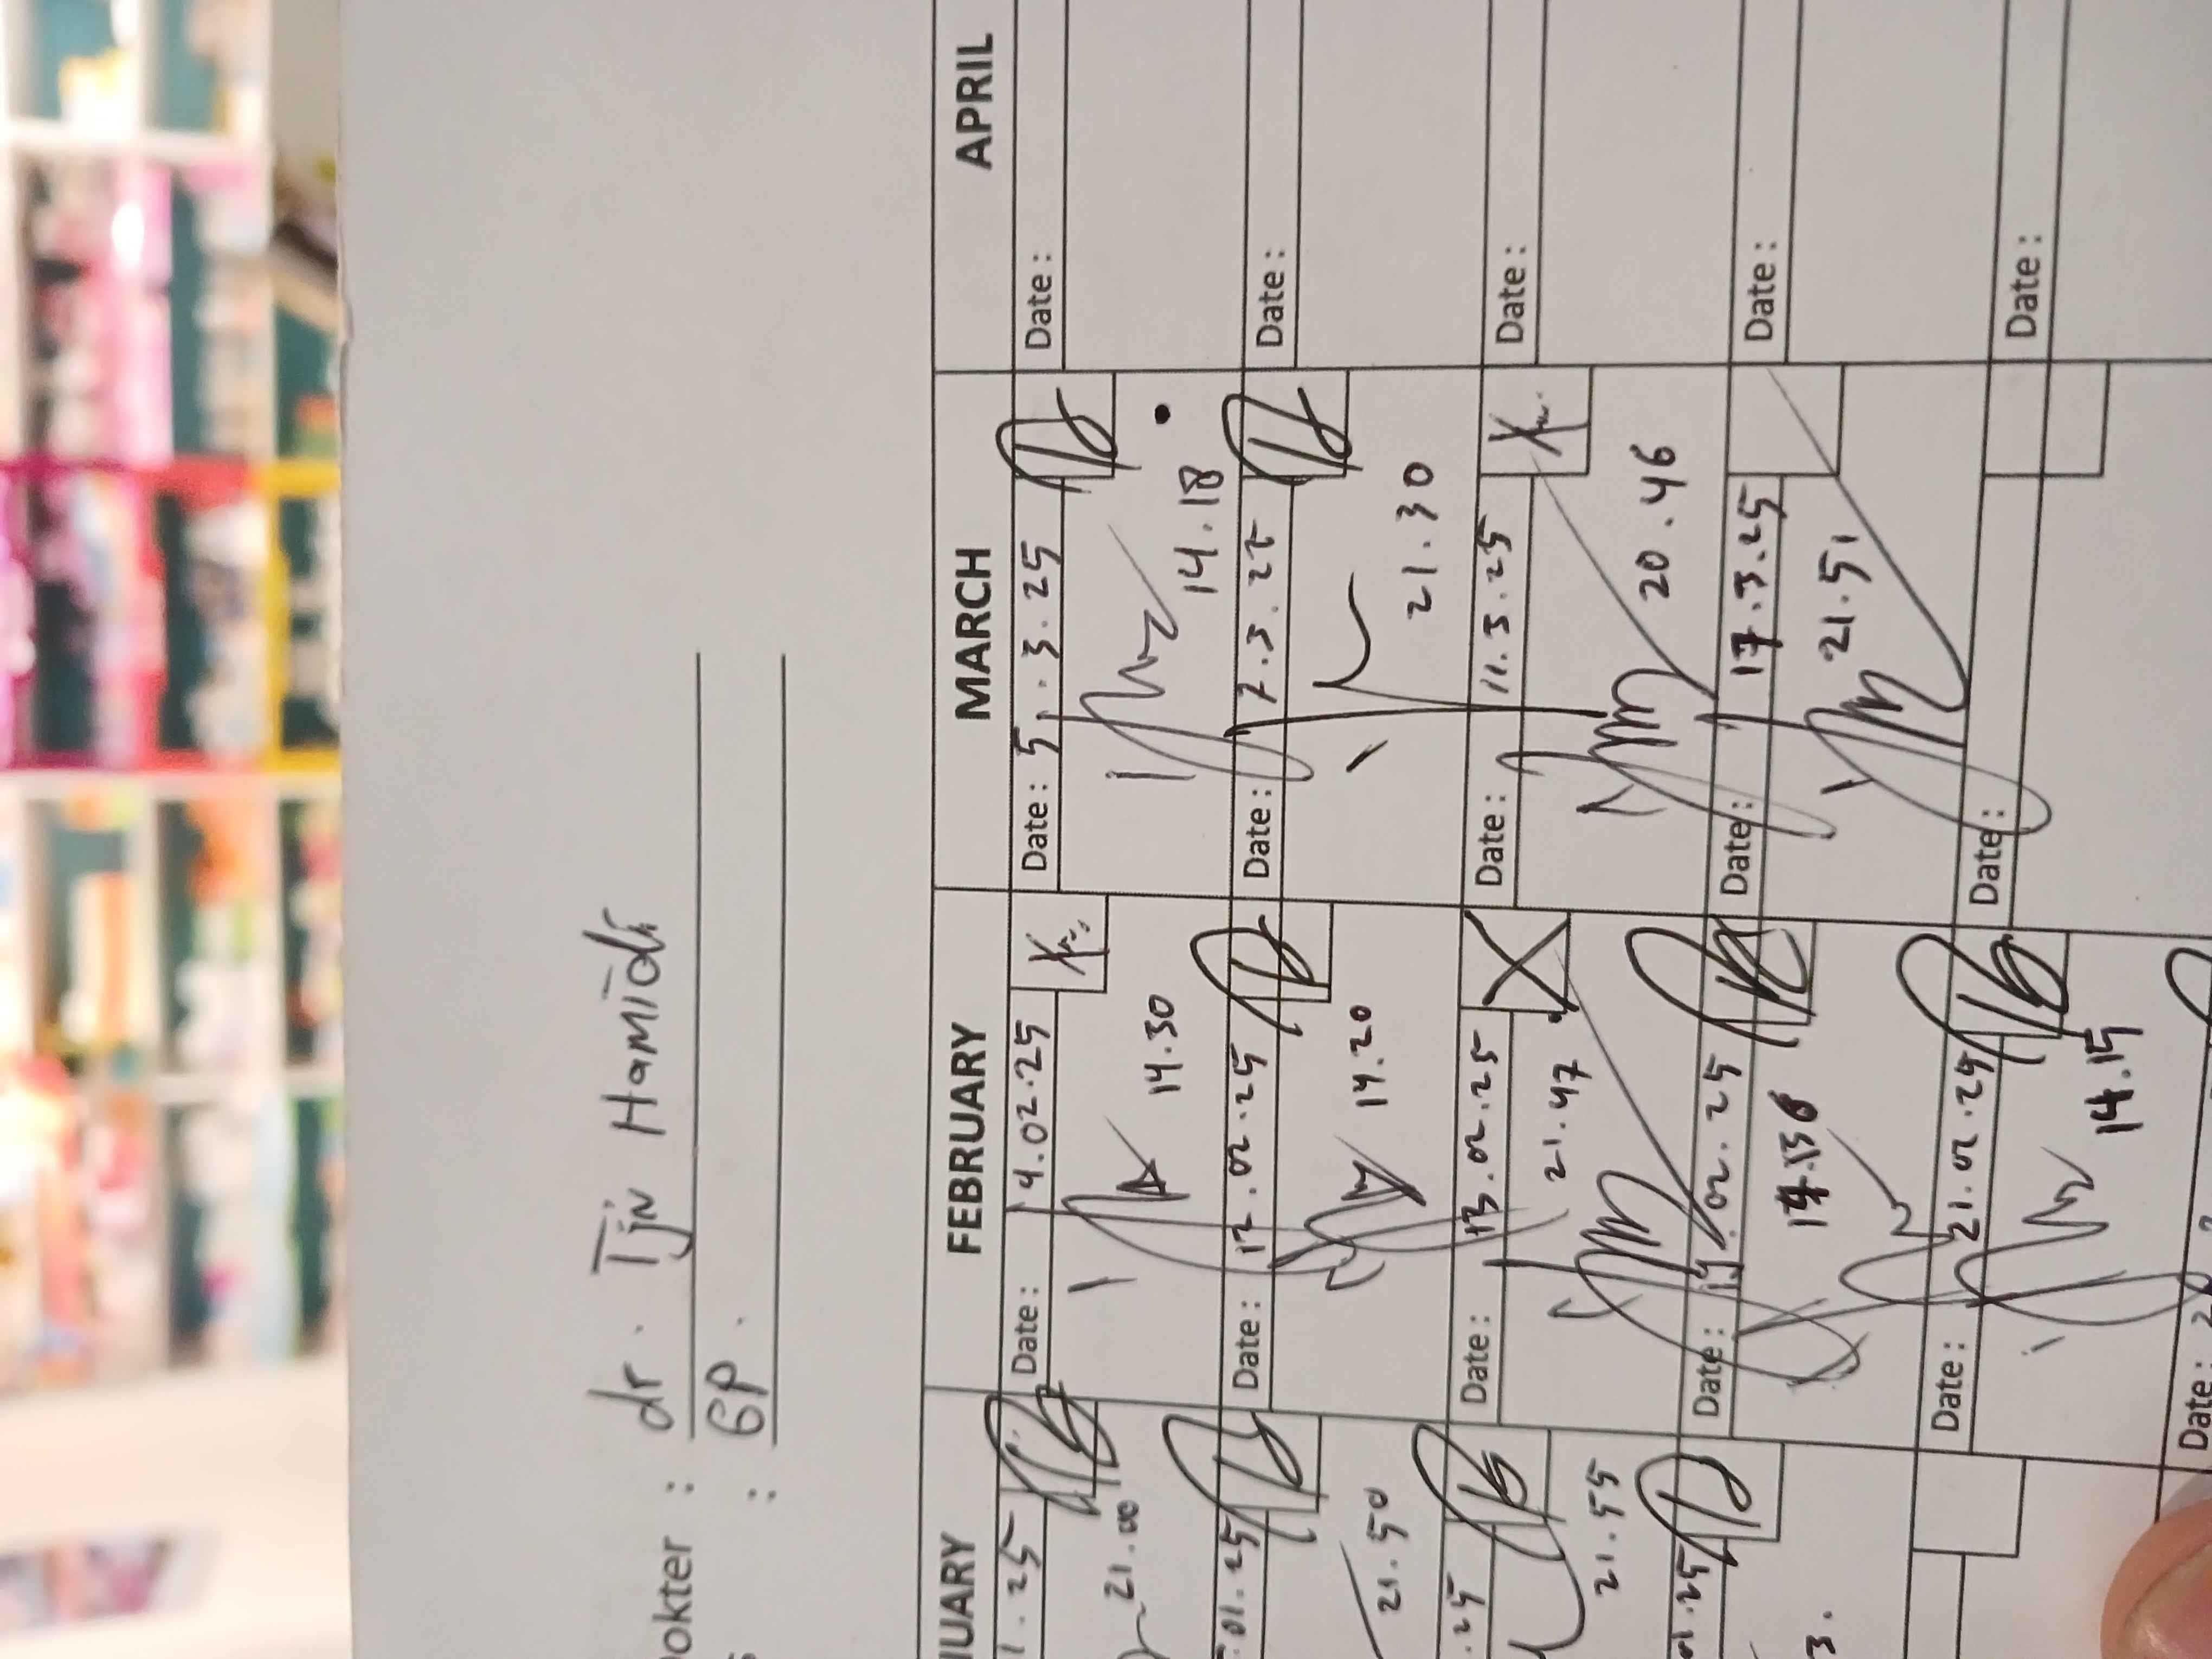 okter : dr. Tjn Hamidi
: GP.
NUARY FEBRUARY MARCH APRIL
1.25 Date: 4.02.25 Date: 5.3.25 Date:
21.00 14.30 14.18
.01.25 Date: 12.02.25 Date: 7.3.25 Date:
21.50 14.20 21.30
.25 Date: 13.02.25 Date: 11.3.25 Date:
21.55 21.47 20.46
01.25 Date: 19.02.25 Date: 17.3.25 Date:
3. 21.51
Date: 21.02.25 Date: Date:
14.15
Date: